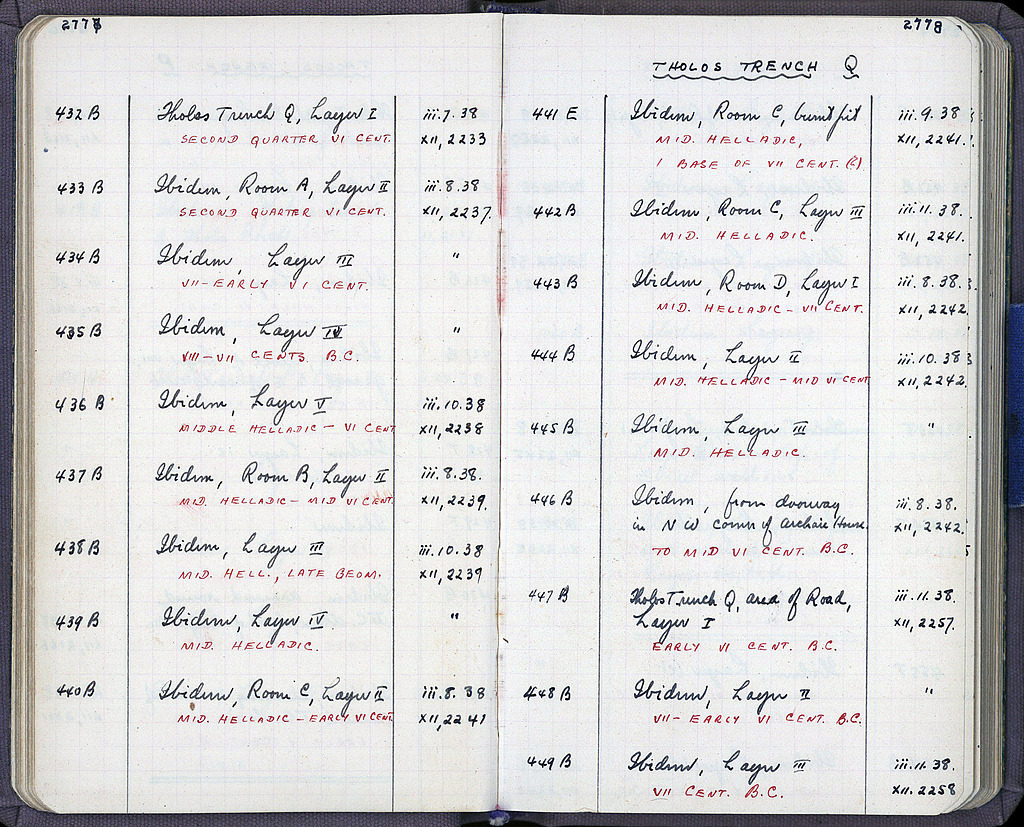 2777
432 B Tholos Trench Q, Layer I iii.7.38
SECOND QUARTER VI CENT. XII, 2233
433 B Ibidem, Room A, Layer II iii.8.38
SECOND QUARTER VI CENT. XII, 2237.
434 B Ibidem, Layer III "
VII - EARLY VI CENT.
435 B Ibidem, Layer IV "
VIII - VII CENTS. B.C.
436 B Ibidem, Layer V iii.10.38
MIDDLE HELLADIC - VI CENT XII, 2238
437 B Ibidem, Room B, Layer II iii.8.38.
MID. HELLADIC - MID VI CENT. XII, 2239.
438 B Ibidem, Layer III iii.10.38
MID. HELL., LATE GEOM. XII, 2239
439 B Ibidem, Layer IV "
MID. HELLADIC.
440 B Ibidem, Room C, Layer II iii.8.38
MID. HELLADIC - EARLY VI CENT. XII, 2241
2778
THOLOS TRENCH Q
441 E Ibidem, Room C, burnt pit iii.9.38
MID. HELLADIC, XII, 2241.
1 BASE OF VII CENT. (?)
442 B Ibidem, Room C, Layer III iii.11.38.
MID. HELLADIC. XII, 2241.
443 B Ibidem, Room D, Layer I iii.8.38.
MID. HELLADIC - VII CENT. XII, 2242.
444 B Ibidem, Layer II iii.10.38
MID. HELLADIC - MID VI CENT XII, 2242.
445 B Ibidem, Layer III "
MID. HELLADIC.
446 B Ibidem, from doorway iii.8.38.
in NW corner of Archaic House. XII, 2242.
TO MID VI CENT. B.C.
447 B Tholos Trench Q, area of Road, iii.11.38.
Layer I XII, 2257.
EARLY VI CENT. B.C.
448 B Ibidem, Layer II "
VII - EARLY VI CENT. B.C.
449 B Ibidem, Layer III iii.11.38.
VII CENT. B.C. XII. 2258